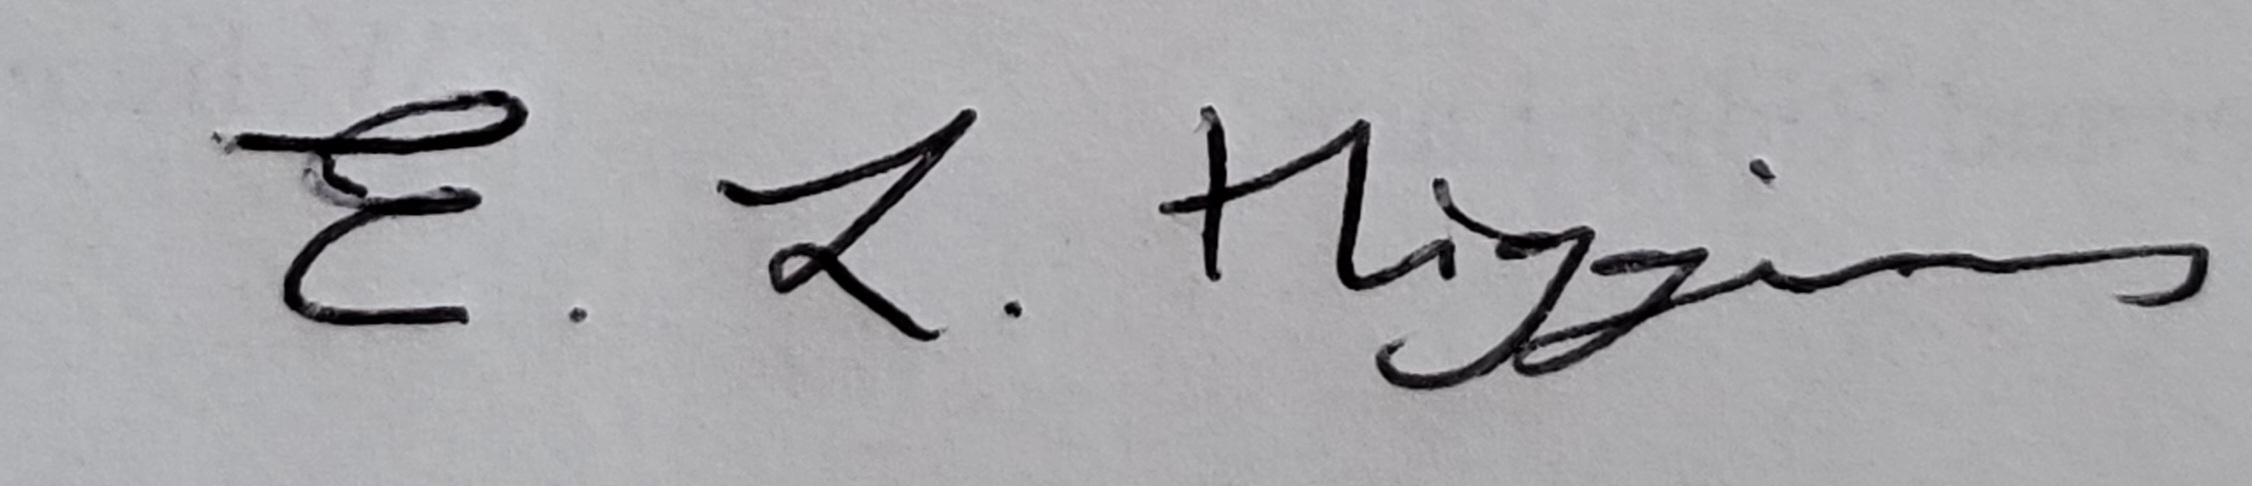 E. L. Higgins